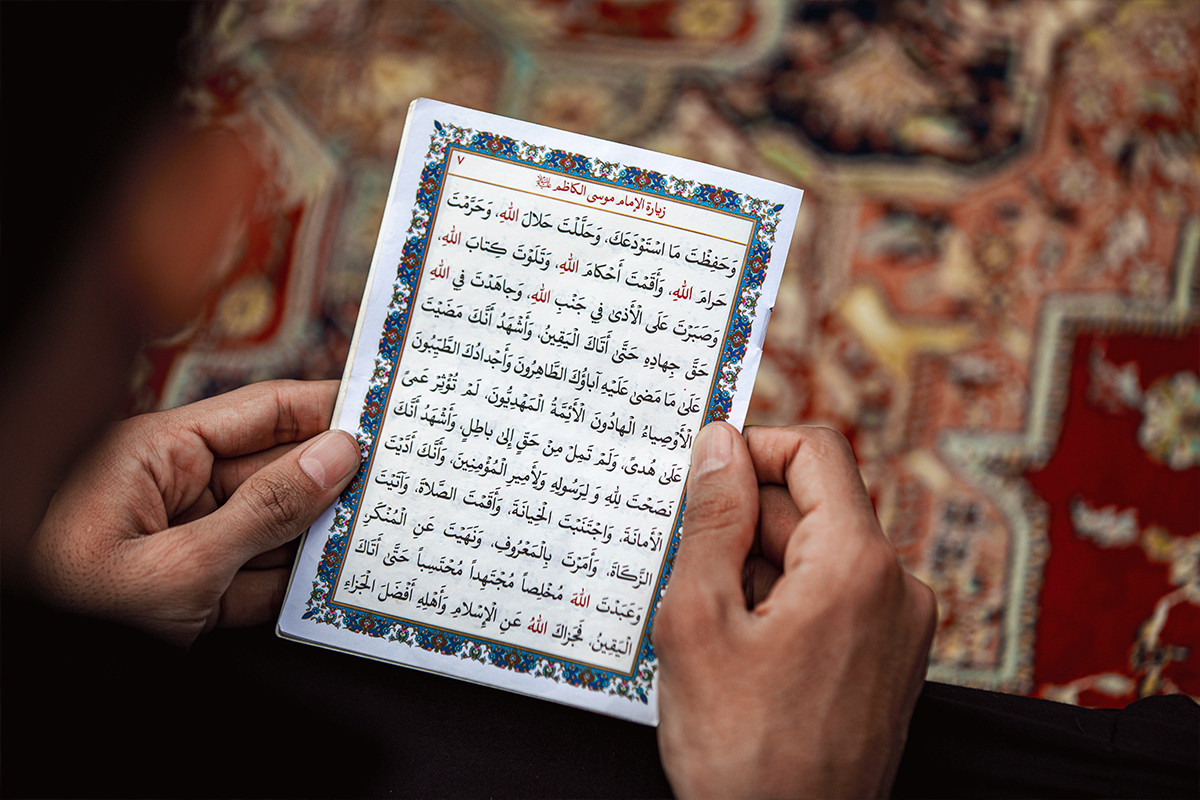 ٧
زيارة الإمام موسى الكاظم عليه السلام
وَحَفِظْتَ مَا اسْتَوْدَعَكَ، وَحَلَّلْتَ حَلالَ اللهِ، وَحَرَّمْتَ
حَرامَ اللهِ، وَأَقَمْتَ أَحْكامَ اللهِ، وَتَلَوْتَ كِتابَ اللهِ،
وَصَبَرْتَ عَلَى الْأَذى في جَنْبِ اللهِ، وَجاهَدْتَ في اللهِ
حَقَّ جِهادِهِ حَتَّىٰ أَتاكَ الْيَقينُ، وَأَشْهَدُ أَنَّكَ مَضَيْتَ
عَلىٰ مَا مَضىٰ عَلَيْهِ آباؤُكَ الطَّاهِرُونَ وَأَجْدادُكَ الطَّيِّبُونَ
الْأَوْصِياءُ الْهادُونَ الْأَئِمَّةُ الْمَهْدِيُّونَ، لَمْ تُؤْثِرْ عَمىً
عَلىٰ هُدىً، وَلَمْ تَمِلْ مِنْ حَقٍ إِلى باطِلٍ، وَأَشْهَدُ أَنَّكَ
نَصَحْتَ لِلهِ وَ لِرَسُولِهِ وَلِأَميرِ الْمُؤْمِنينَ، وَأَنَّكَ أَدَّيْتَ
الْأَمانَةَ، وَاجْتَنَبْتَ الْخِيانَةَ، وَأَقَمْتَ الصَّلاةَ، وَآتَيْتَ
الزَّكاةَ، وَأَمَرْتَ بِالْمَعْرُوفِ، وَنَهَيْتَ عَنِ الْمُنْكَرِ،
وَعَبَدْتَ اللهَ مُخْلِصاً مُجْتَهِداً مُحْتَسِباً حَتَّىٰ أَتَاكَ
الْيَقِينُ، فَجَزاكَ اللهُ عَنِ الْإِسْلامِ وَأَهْلِهِ أَفْضَلَ الْجَزاءِ